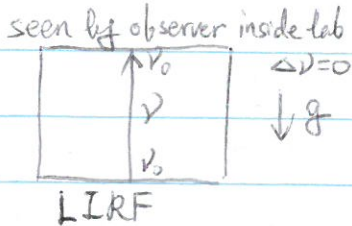 seen by observer inside lab
ν₀ Δν=0
ν ↓g
ν₀
LIRF